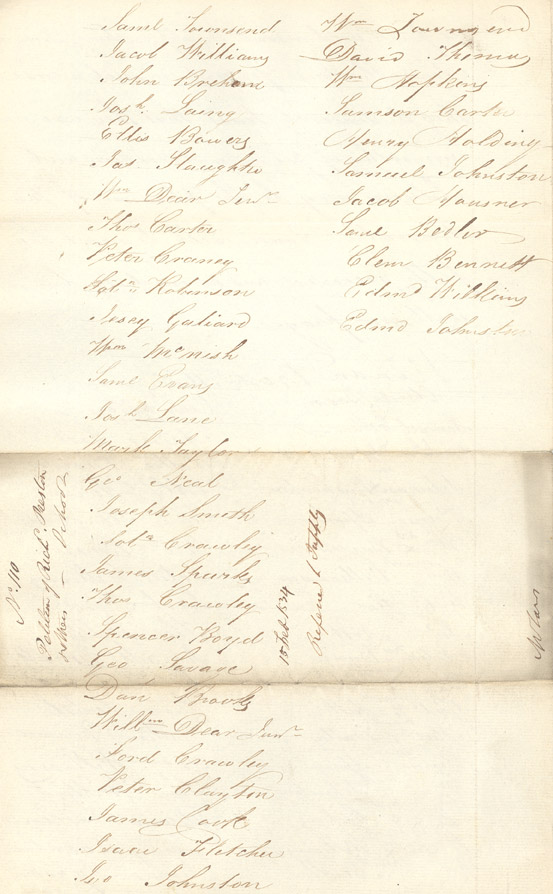 Saml Townsend
Jacob Williams
John Breham
Josh Laing
Ellis Bowers
Jas. Slaughter
Wm Dear Junr
Thos Carter
Peter Craney
Robinson
Galiard
Wm McNish
Saml Evans
Josh Lane
Mark Taylor
Geo Neal
Joseph Smith
Crawley
James Sparks
Thos Crawley
Spencer Boyd
Geo Savage
Dan Brooks
Willm Dear Junr
Ford Crawley
Peter Clayton
James Cook
Isaac Fletcher
Geo Johnston
Wm Townsend
David Thomas
Wm Hopkins
Samson Carter
Henry Holding
Samuel Johnston
Jacob Hausner
Saml Bedler
Clem Bennett
Edmd Wilkins
Edmd Johnston
No 110
Petition of Richd Preston
& others
15 Feb 1834